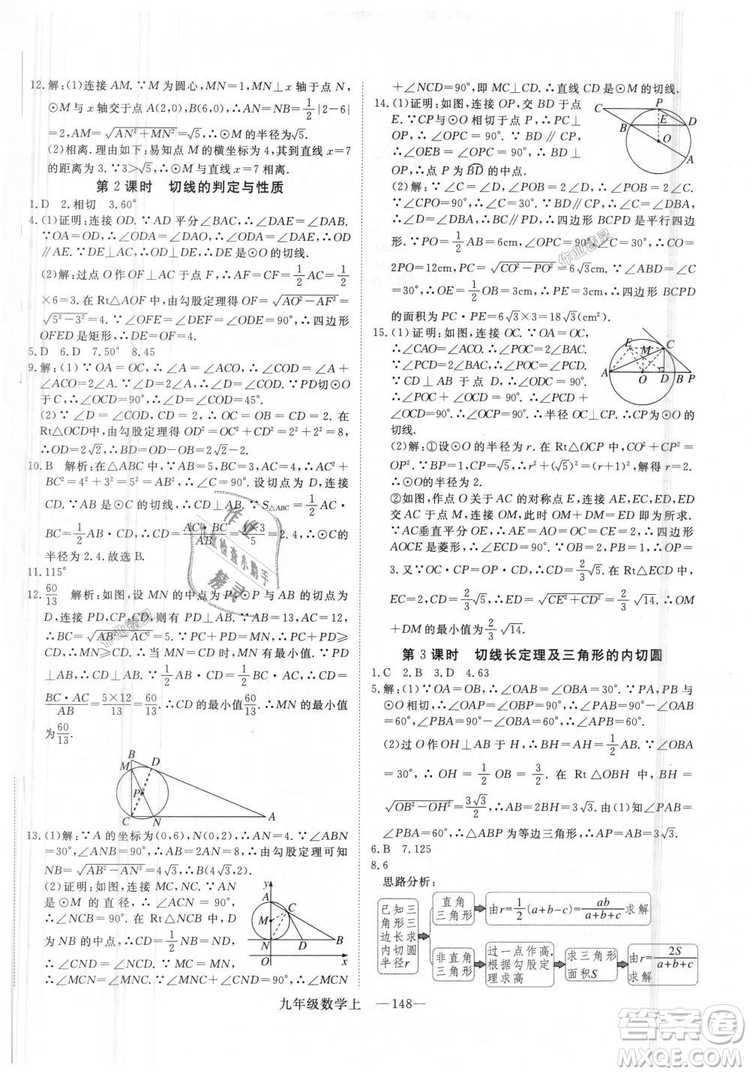 12.解:(1)连接 AM.∵M 为圆心,MN=1,MN⊥x 轴于点 N,
⊙M 与 x 轴交于点 A(2,0),B(6,0),∴AN=NB=1/2|2-6|
=2,AM=√(AN²+MN²)=√5.∴⊙M 的半径为√5.
(2)相离.理由如下:易知点 M 的横坐标为 4,其到直线 x=7
的距离为 3.∵3>√5,∴⊙M 与直线 x=7 相离.
第 2 课时 切线的判定与性质
1.D 2.相切 3.60°
4.(1)证明:连接 OD.∵AD 平分∠BAC,∴∠DAE=∠DAB.
∵OA=OD,∴∠ODA=∠DAO,∴∠ODA=∠DAE,∴OD
∥AE.∵DE⊥AC,∴OD⊥DE,∴DE 是⊙O 的切线.
(2)解:过点 O 作 OF⊥AC 于点 F,∴AF=CF=1/2AC=1/2
×6=3.在 Rt△AOF 中,由勾股定理得 OF=√(AO²-AF²)=
√(5²-3²)=4.∵∠OFE=∠DEF=∠ODE=90°,∴四边形
OFED 是矩形,∴DE=OF=4.
5.D 6.D 7.50° 8.45
9.解:(1)∵OA=OC,∴∠A=∠ACO,∴∠COD=∠A+
∠ACO=2∠A.∵∠D=2∠A,∴∠D=∠COD.∵PD 切⊙O
于 C,∴∠OCD=90°,∴∠D=∠COD=45°.
(2)∵∠D=∠COD,CD=2,∴OC=OB=CD=2.在
Rt△OCD 中,由勾股定理得 OC²+CD²=OD²,∴2²+2²=
OD²,∴OD=2√2,∴BD=OD-OB=2√2-2.
10.B 解析:在△ABC 中,∵AB=5,BC=3,AC=4,∴AC²
+BC²=3²+4²=5²=AB²,∴∠C=90°.如图,设切点为 D,
连接 CD,∵AB 是⊙C 的切线,∴CD⊥AB.∵S△ABC=1/2AC·
BC=1/2AB·CD,∴CD=AC·BC/AB=4×3/5=12/5,∴⊙C 的
半径为 2.4.故选 B.
11.115°
12.60/13 解析:如图,设 MN 的中点为 P,⊙P 与 AB 的切点为
D,连接 PD,CP,CD,则有 PD⊥AB.∵AB=13,AC=12,
∴BC=√(AB²-AC²)=5.∵PC+PD=MN,∴PC+PD≥
CD,∴MN≥CD.∴当 MN=CD 时,MN 有最小值.∵PD
⊥AB,∴CD⊥AB.∵1/2AB·CD=1/2BC·AC,∴CD=
BC·AC/AB=5×12/13=60/13.∴CD 的最小值为60/13.∴MN 的最小值
为60/13.
B
M
D
P
C
A
13.(1)解:∵A 的坐标为(0,6),N(0,2),∴AN=4.∵∠ABN
=30°,∠ANB=90°,∴AB=2AN=8,∴由勾股定理可知
NB=√(AB²-AN²)=4√3,∴B(4√3,2).
(2)证明:如图,连接 MC,NC.∵AN
是⊙M 的直径,∴∠ACN=90°,
∴∠NCB=90°.在 Rt△NCB 中,∵D
为 NB 的中点,∴CD=1/2NB=ND,
∴∠CND=∠NCD.∵MC=MN,
∴∠MCN=∠MNC.∵∠MNC
y
A
C
M
N
D
B
O
x
+∠CND=90°,∴∠MCN
+∠NCD=90°,即 MC⊥CD.∴直线 CD 是⊙M 的切线.
14.(1)证明:如图,连接 OP,交 BD 于点
E.∵CP 与⊙O 相切于点 P,∴PC
⊥OP,∴∠OPC=90°.∵BD∥CP,
∴∠OEB=∠OPC=90°,∴BD⊥OP,
∴点 P 为BD的中点.
C
P
B
E
D
O
A
(2)解:∵∠C=∠D,∠POB=2∠D,∴∠POB=2∠C.
∵∠CPO=90°,∴∠C=30°.∵BD∥CP,∴∠C=∠DBA,
∴∠D=∠DBA,∴BC∥PD,∴四边形 BCPD 是平行四边
形.∵PO=1/2AB=6cm,∠OPC=90°,∠C=30°,∴OC=
2PO=12cm,∴PC=√(CO²-PO²)=6√3(cm).∵∠ABD=
∠C=30°,∴OE=1/2OB=3cm,∴PE=3cm,∴四边形 BCPD
的面积为 6√3×3=18√3(cm²).
15.(1)证明:如图,连接 OC.∵OA=OC,
∴∠CAO=∠ACO.∵∠PCB
=∠CAO,∴∠ACO=∠PCB.∵AB
是⊙O 的直径,∴∠ACO+∠OCB
=90°,∴∠PCB+∠OCB=90°,即
∠OCP=90°,∴半径 OC⊥CP,∴CP 为⊙O 的
切线.
E
C
M
A
O
D
B
P
(2)解:①设⊙O 的半径为 r.在 Rt△OCP 中,OC²+CP²
=OP².∵BP=1,CP=√5,∴r²+(√5)²=(r+1)²,解得
r=2.
②如图,作点 O 关于 AC 的对称点 E,连接 AE,EC,ED,ED
交 AC 于点 M,连接 OM,此时 OM+DM=ED 即为所求.
∵AC垂直平分 OE,∴AE=AO,∴∠OAC=∠EAC.四边形
AOCE 是菱形,∴EC=AO=2,EC∥AO,∴∠ECD=∠CDP
=90°.∵1/2CP·OC=1/2OP·CD,OC=2,CP=√5,OP=3,
∴CD=2√5/3.在 Rt△ECD 中,ED=√(CE²+CD²)=2/3√14.∴OM+
DM 的最小值为2/3√14.
第 3 课时 切线长定理及三角形的内切圆
1.C 2.B 3.D 4.63
5.解:(1)∵∠APB=60°,∴∠AOB=120°.∵PA、PB
与⊙O 相切,∴∠OAP=∠OBP=90°,∴∠OAB=∠OBA
=30°,∴∠BAP=60°.
(2)过 O 作 OH⊥AB 于点 H,∴BH=AH=1/2AB.∵∠OBH
=30°,∴OH=1/2OB=3/2.在 Rt△OBH 中,BH=
√(OB²-OH²)=3√3/2,∴AB=3√3.由(1)知∠BAP=
∠PBA=60°,∴△PAB 为等边三角形,∴PA=AB=3√3.
6.B 7.125
8.6
思路分析:
已知三角形三边长求内切圆半径r
直角三角形
由r=1/2(a+b-c)=ab/(a+b+c)求解
非直角三角形
过一点作高,根据勾股定理求高
求三角形面积S
由r=2S/(a+b+c)求解
九年级数学上 —148—